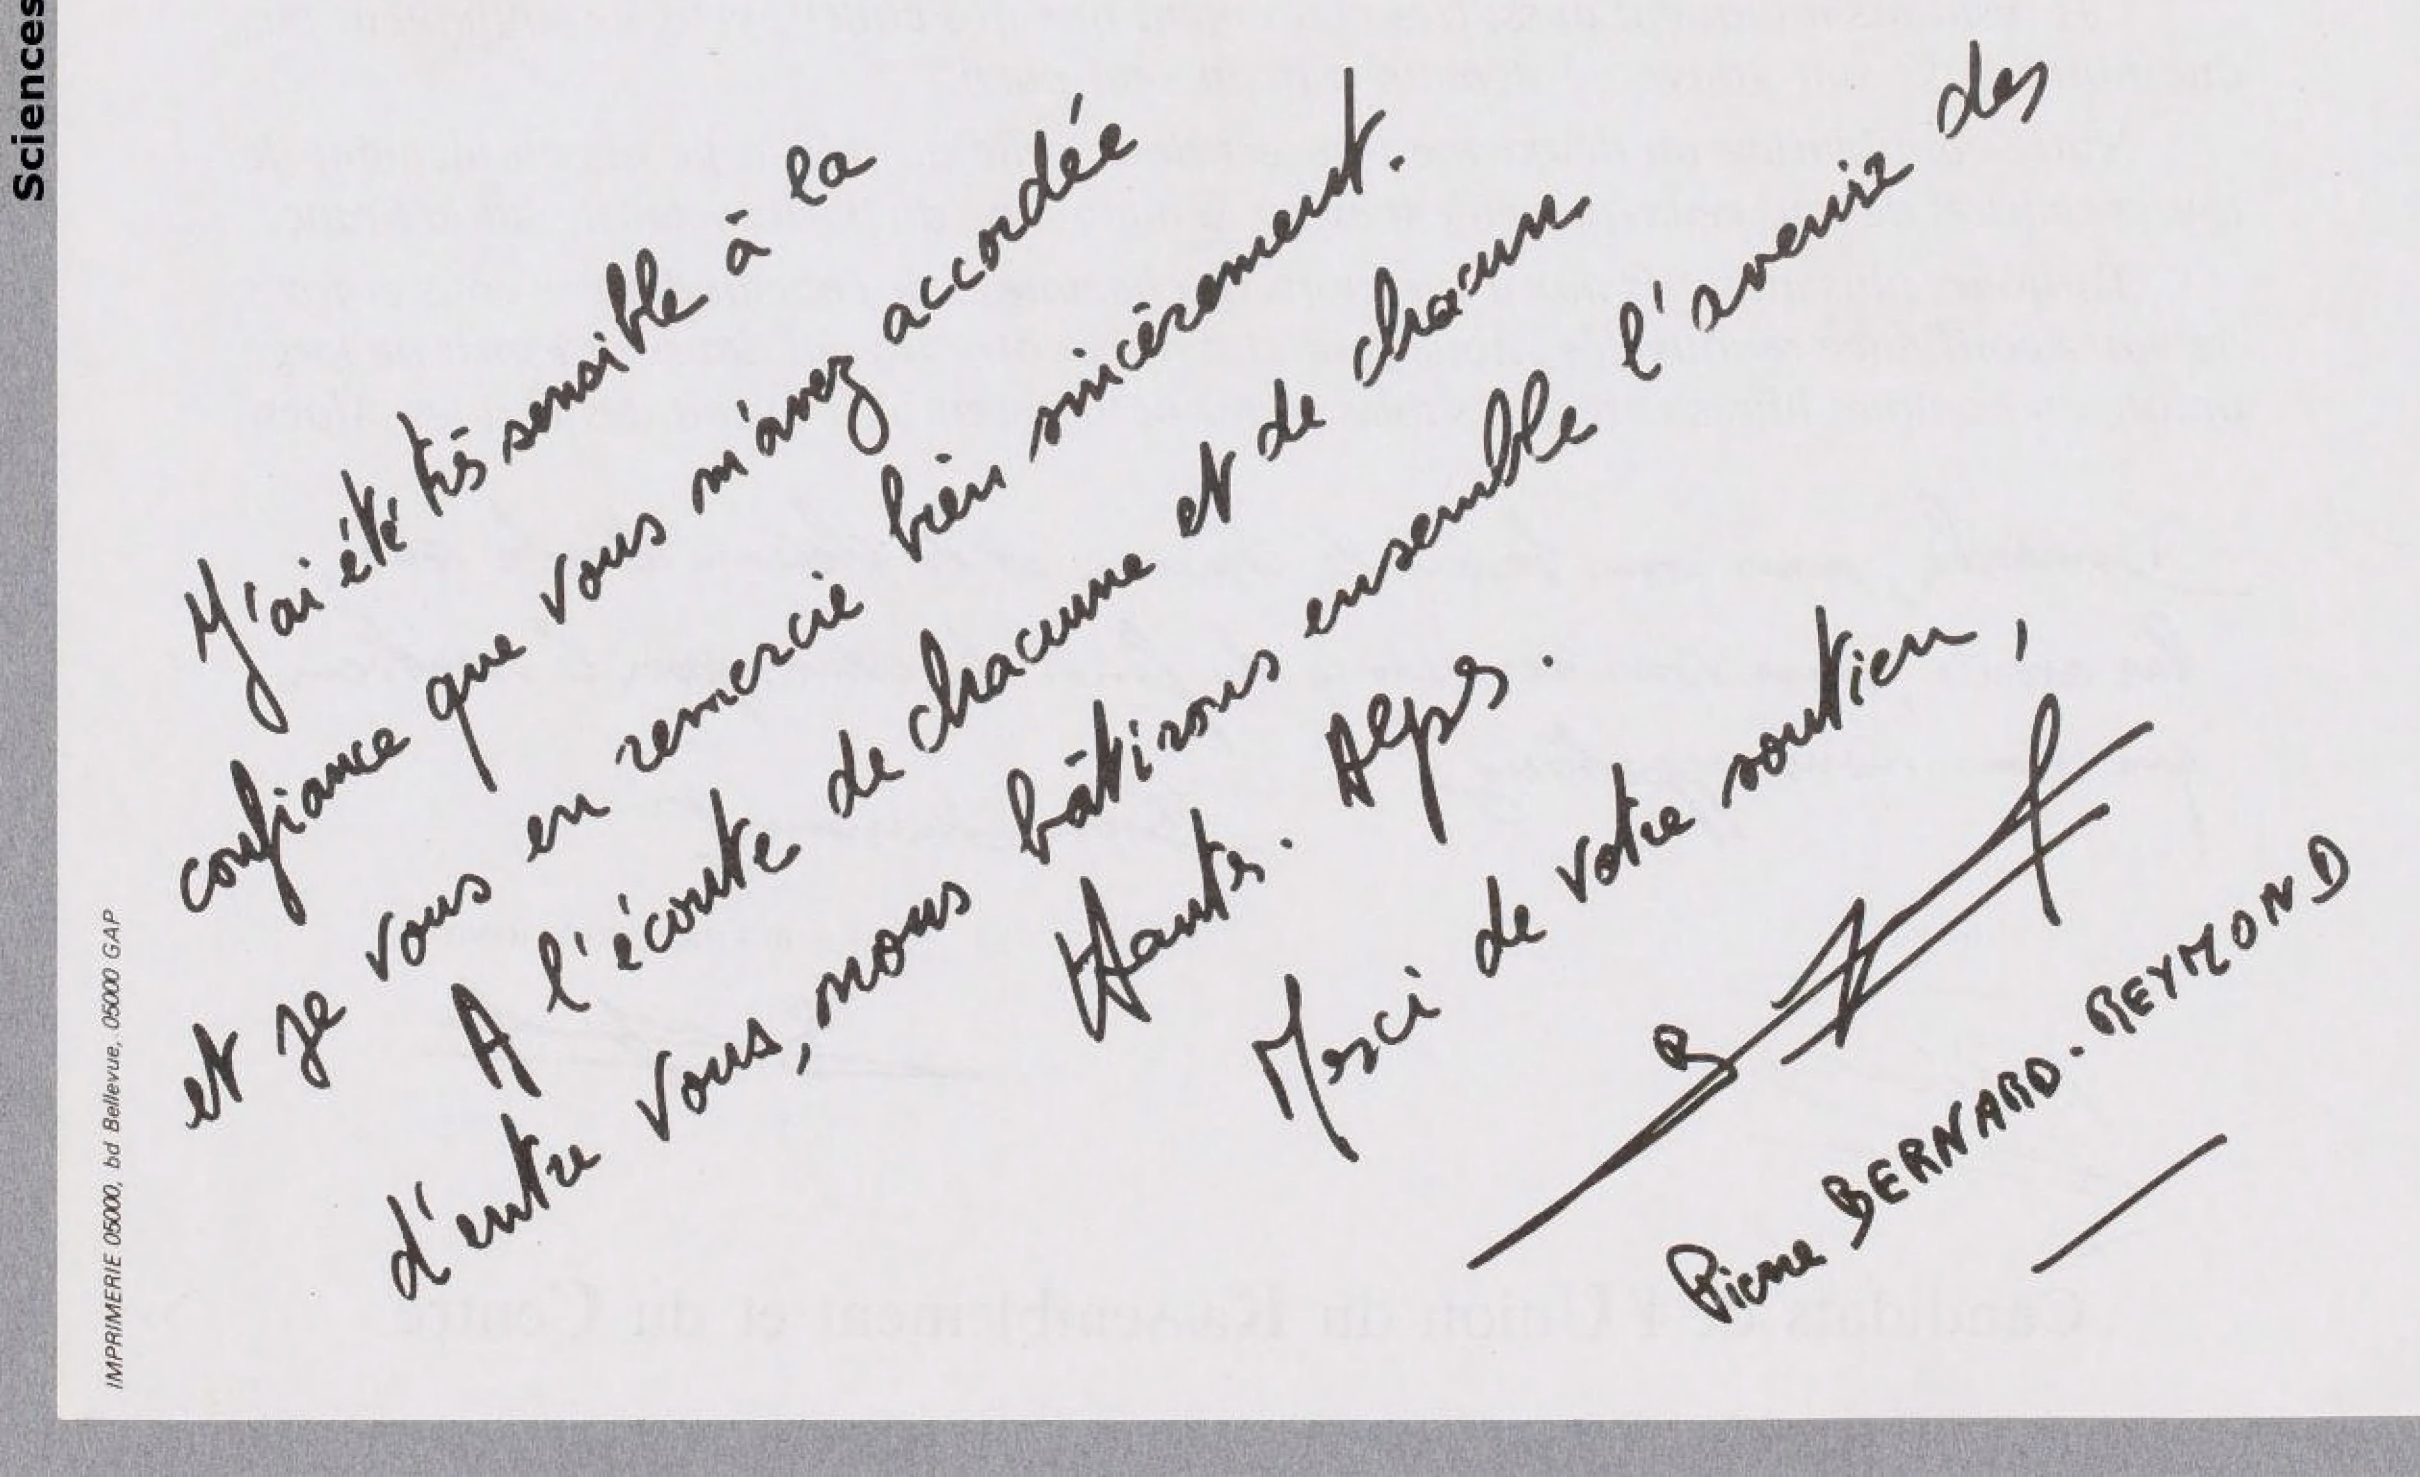 Sciences
J'ai été très sensible à la
confiance que vous m'avez accordée
et je vous en remercie bien sincèrement.
A l'écoute de chacune et de chacun
d'entre vous, nous bâtirons ensemble l'avenir des
Hautes-Alpes.
Merci de votre soutien,
Pierre BERNARD-REYMOND
IMPRIMERIE 05000, bd Bellevue, 05000 GAP
Candidats de l'Union du Rassemblement et du Centre